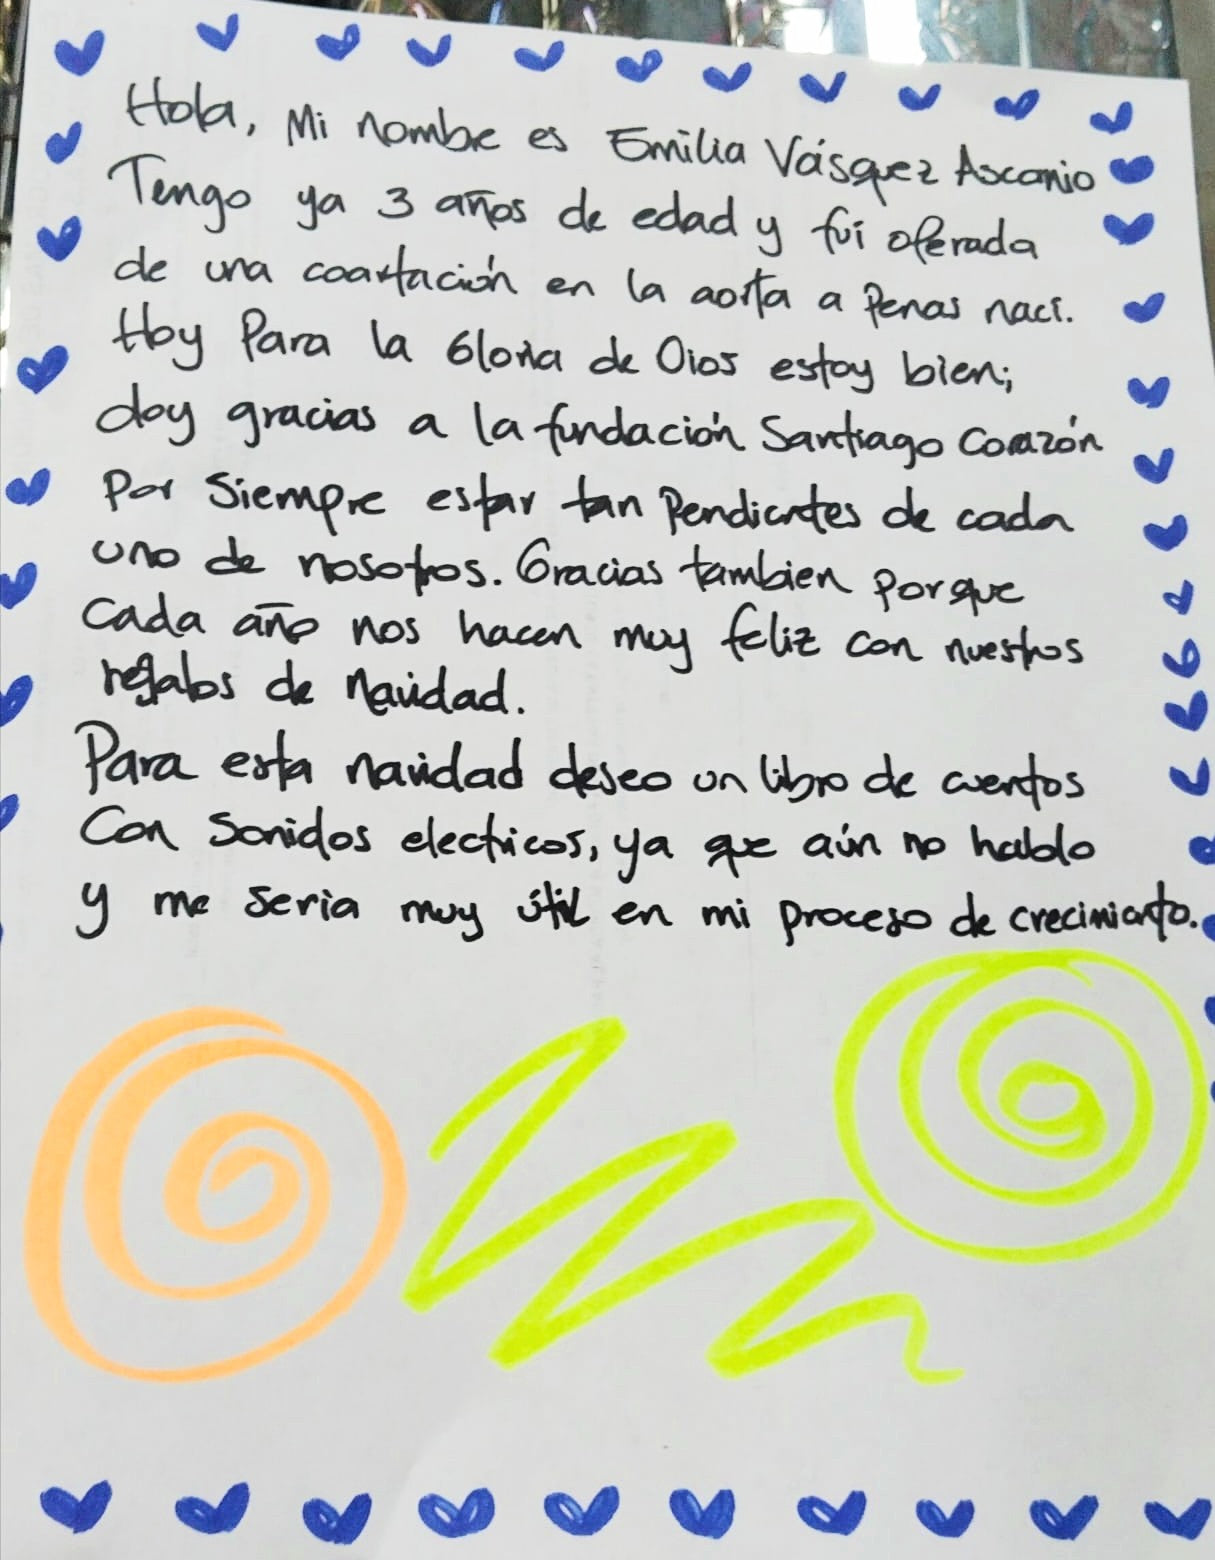 Hola, Mi nombre es Emilia Vásquez Ascanio
Tengo ya 3 años de edad y fui operada
de una coartación en la aorta a penas nací.
Hoy Para la Gloria de Dios estoy bien;
doy gracias a la fundación Santiago Corazón
Por Siempre estar tan Pendientes de cada
uno de nosotros. Gracias tambien porque
cada año nos hacen muy feliz con nuestros
regalos de Navidad.
Para esta navidad deseo un libro de cuentos
Con Sonidos electricos, ya que aún no hablo
y me seria muy útil en mi proceso de crecimiento.